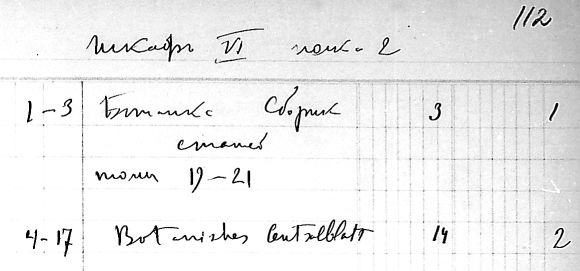 112
Шкафъ VI полка 2
1-3 Ботаника Сборник 3 1
статей
томы 19-21
4-17 Botanisches Centralblatt 14 2